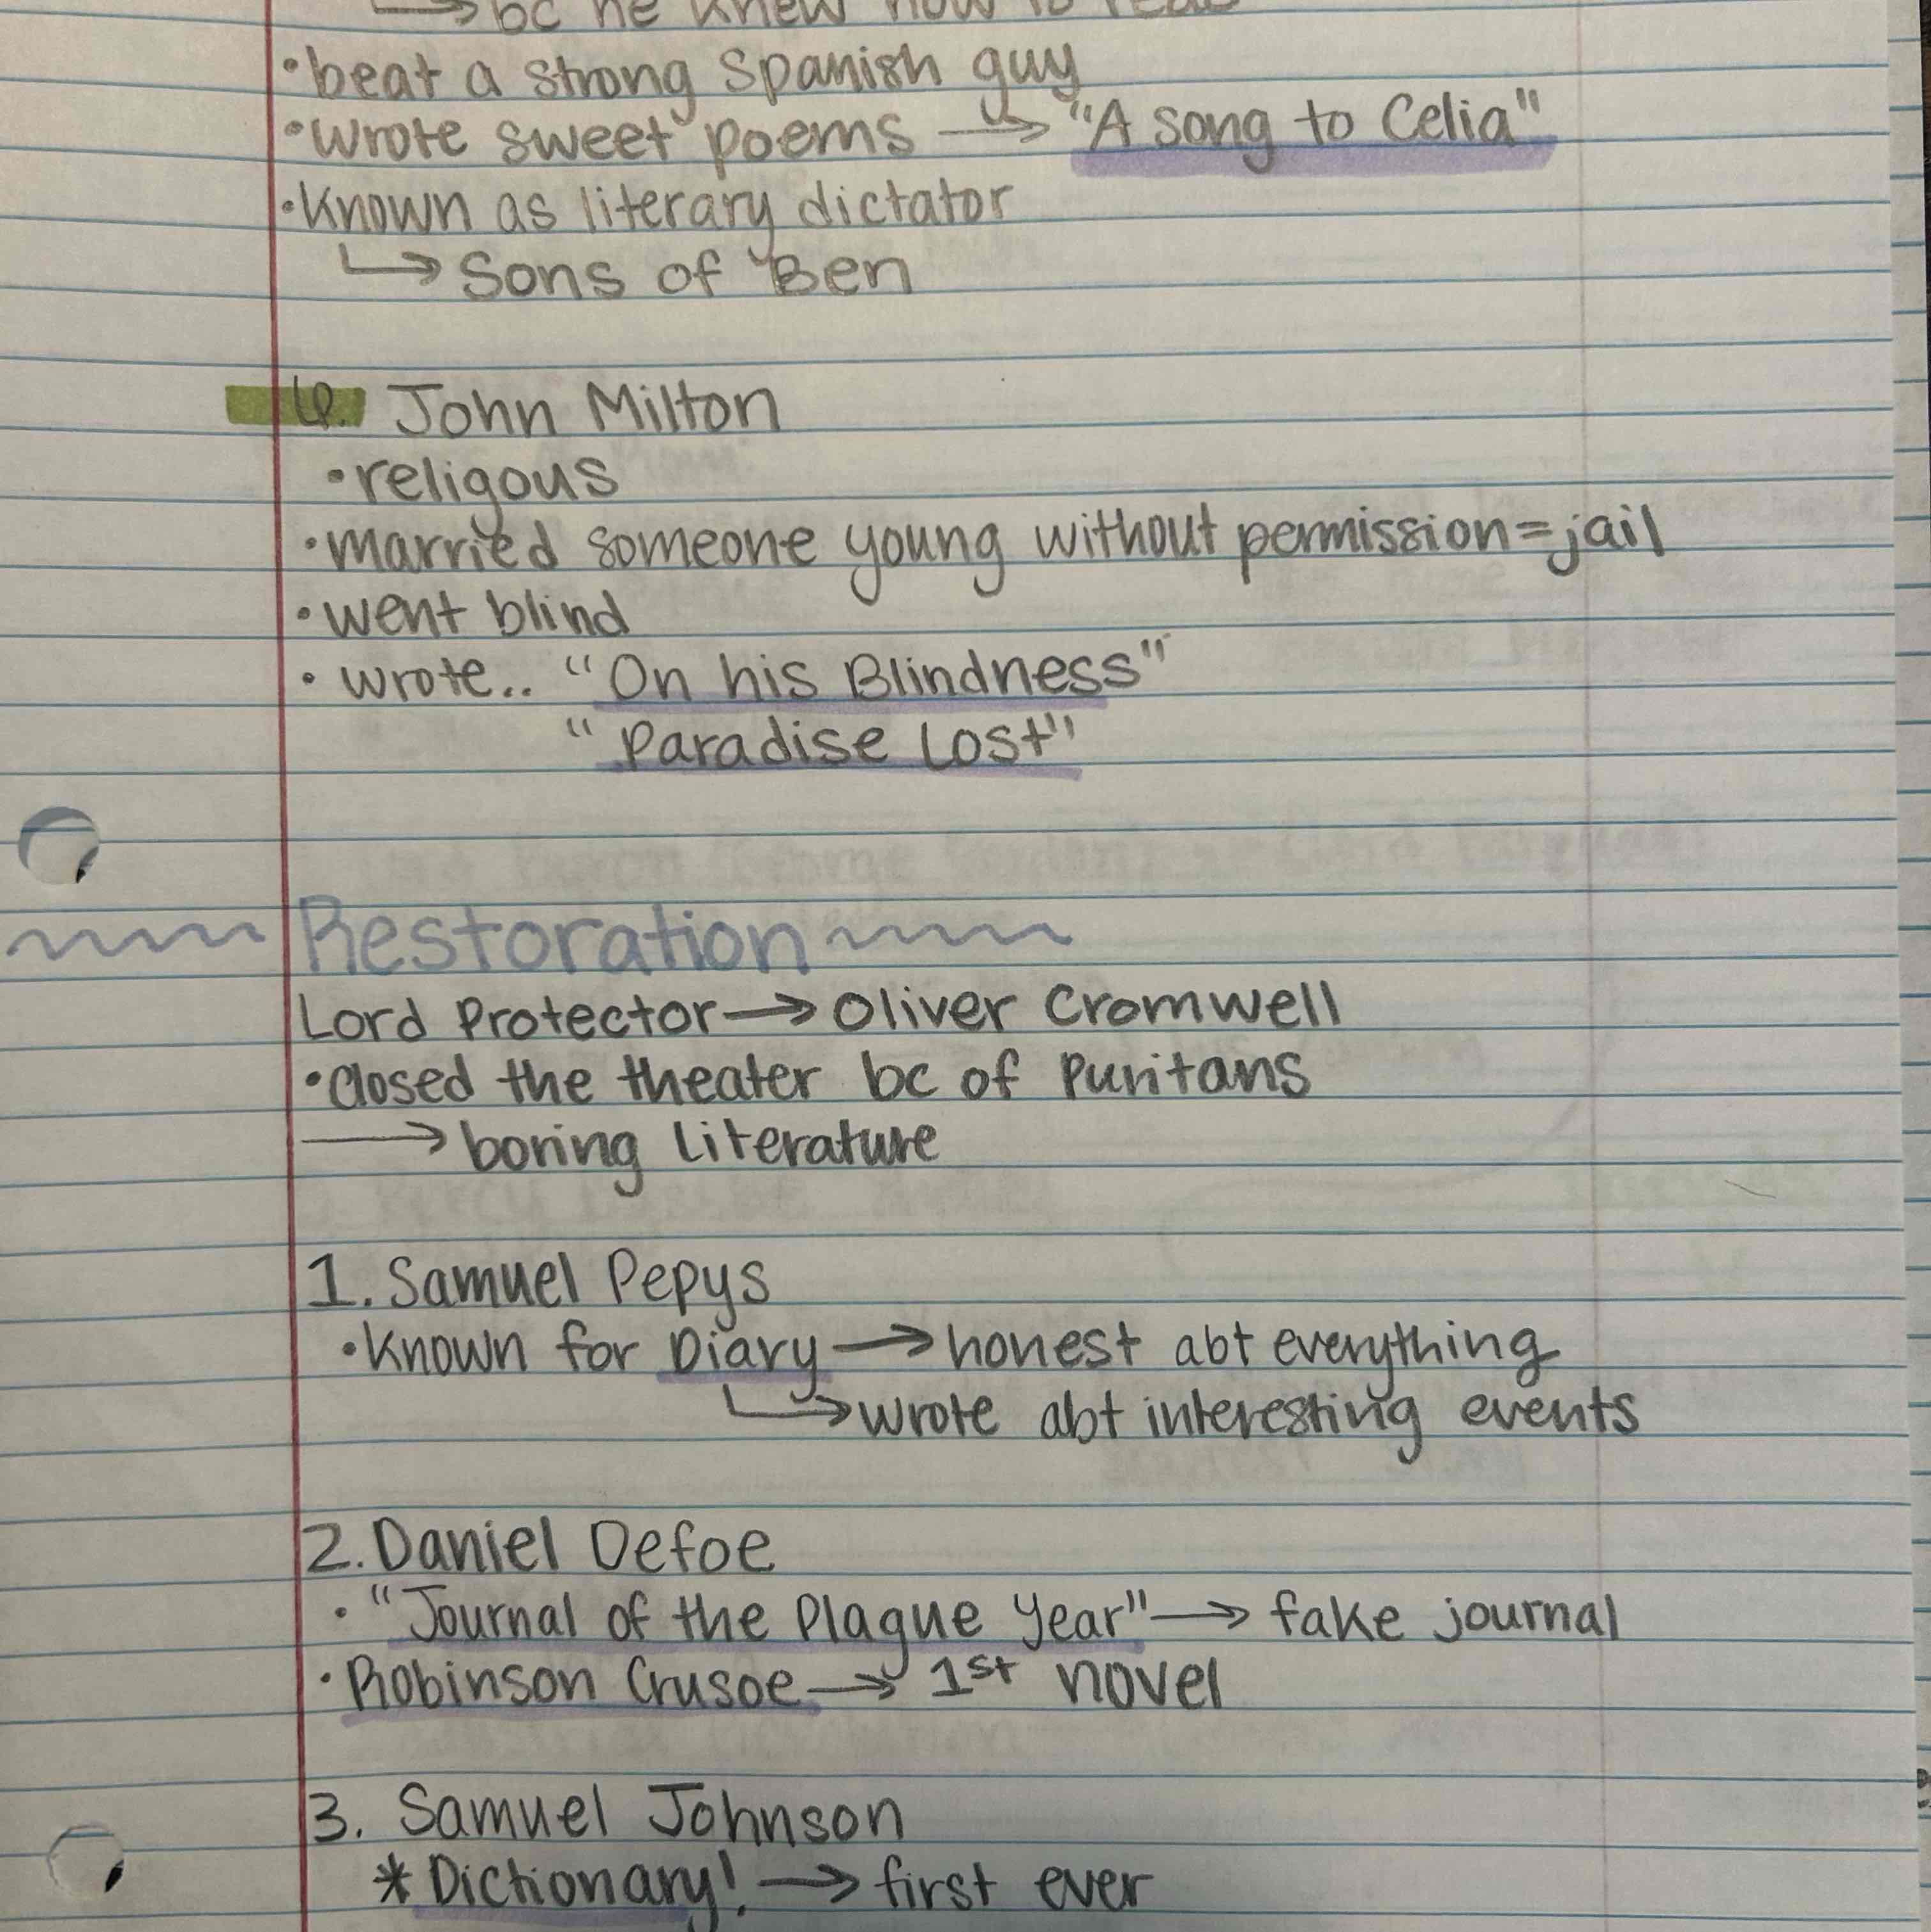 ↳ bc he knew how to read
• beat a strong Spanish guy
• wrote sweet poems → "A song to Celia"
• Known as literary dictator
↳ Sons of Ben
6. John Milton
• religous
• married someone young without permission = jail
• went blind
• wrote.. "On his Blindness"
"Paradise Lost"
~~~ Restoration ~~~
Lord Protector → Oliver Cromwell
• Closed the theater bc of Puritans
→ boring literature
1. Samuel Pepys
• Known for Diary → honest abt everything
↳ wrote abt interesting events
2. Daniel Defoe
• "Journal of the Plague Year" → fake journal
• Robinson Crusoe → 1st novel
3. Samuel Johnson
* Dictionary! → first ever